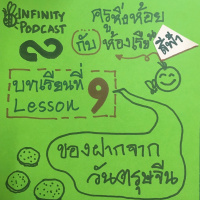 INFINITY
PODCAST
ครูหิ่งห้อย
กับ ห้องเรียน
สีฟ้า
บทเรียนที่
Lesson 9
ของฝากจาก
วันตรุษจีน